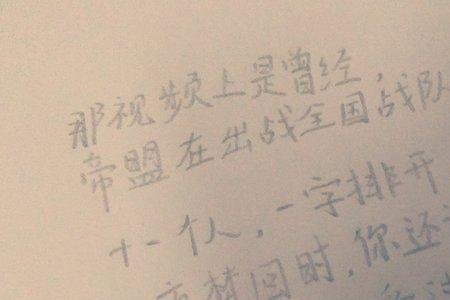 那视频上是曾经，
帝盟在出战全国战队
十一个人，一字排开
梦回时，你还